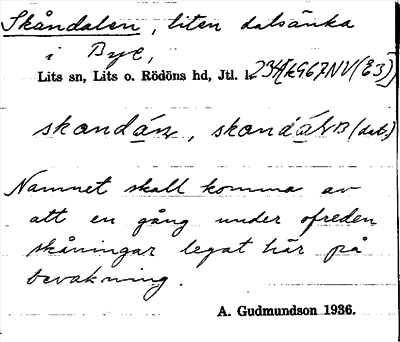 Skåndalen, liten dalsänka
i Bye,
Lits sn, Lits o. Rödöns hd, Jtl. l.
skandán, (dat.)
Namnet skall komma av
att en gång under ofreden
skåningar legat här på
bevakning.
A. Gudmundson 1936.